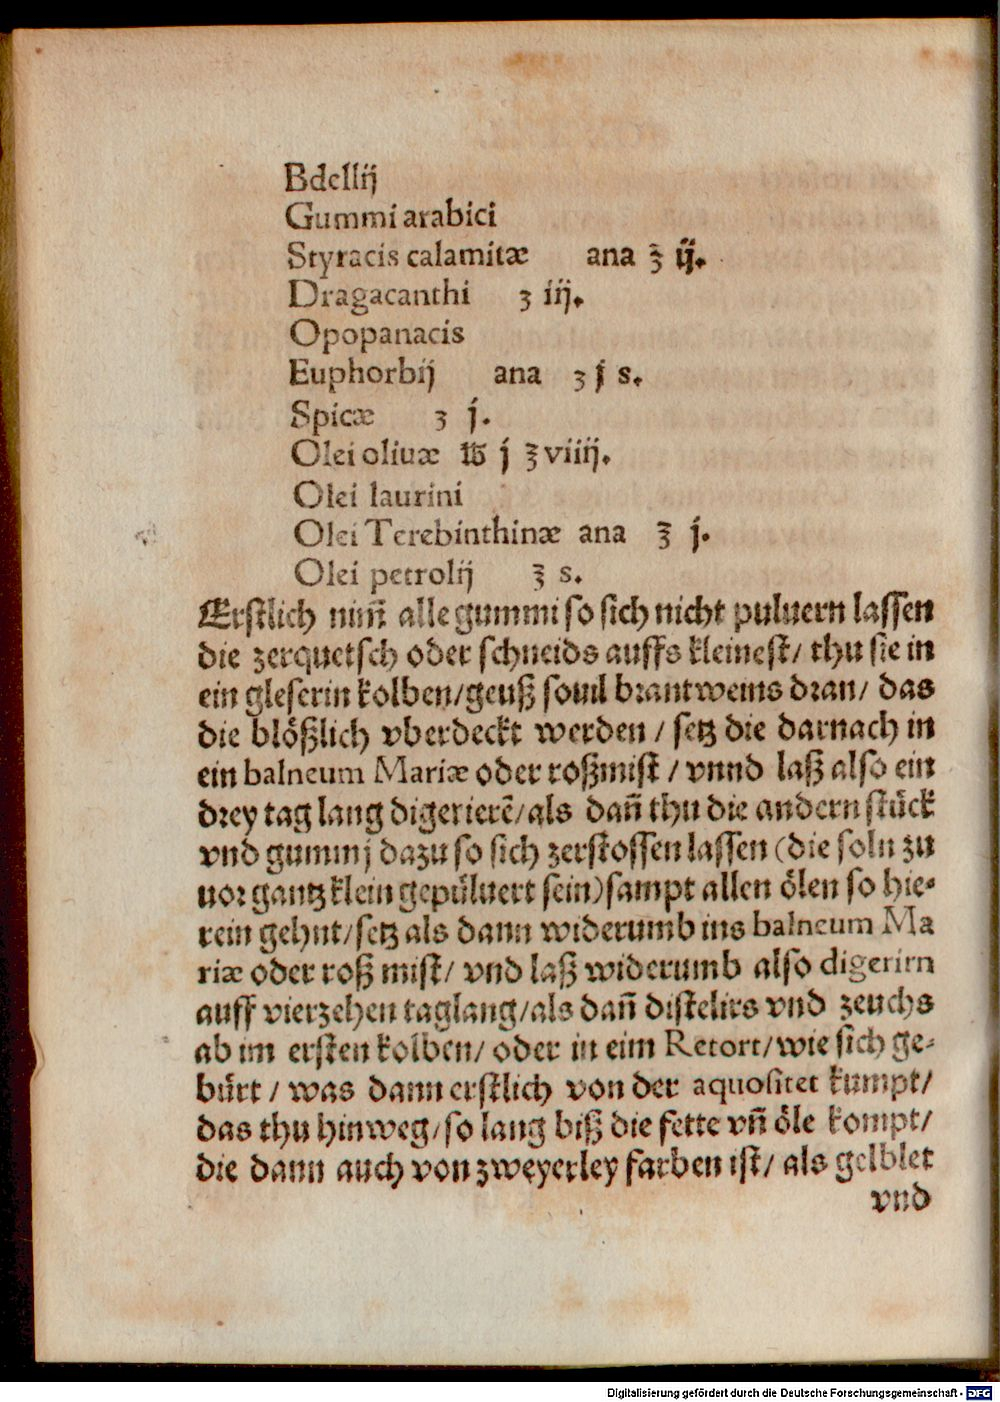 Bdellij
Gummi arabici
Styracis calamitæ ana ℥ ij.
Dragacanthi ʒ iij.
Opopanacis
Euphorbij ana ʒ j s.
Spicæ ʒ j.
Olei oliuæ ℔ j ℥ viiij.
Olei laurini
Olei Terebinthinæ ana ℥ j.
Olei petrolij ℥ s.
Erstlich nim̃ alle gummi so sich nicht puluern lassen
die zerquetsch oder schneids auffs kleinest/ thu sie in
ein gleserin kolben/geuß souil brantweins dran/ das
die blößlich vberdeckt werden / setz die darnach in
ein balneum Mariæ oder roßmist / vnnd laß also ein
drey tag lang digerierẽ/als dañ thu die andern stück
vnd gummj dazu so sich zerstossen lassen (die soln zu
uor gantz klein gepüluert sein)sampt allen ölen so hie-
rein gehnt/setz als dann widerumb ins balneum Ma
riæ oder roß mist/ vnd laß widerumb also digerirn
auff vierzehen taglang/als dañ distelirs vnd zeuchs
ab im ersten kolben/ oder in eim Retort/wie sich ge-
bürt / was dann erstlich von der aquositet kumpt/
das thu hinweg/so lang biß die fette vñ öle kompt/
die dann auch von zweyerley farben ist/ als gelblet
vnd
Digitalisierung gefördert durch die Deutsche Forschungsgemeinschaft - DFG